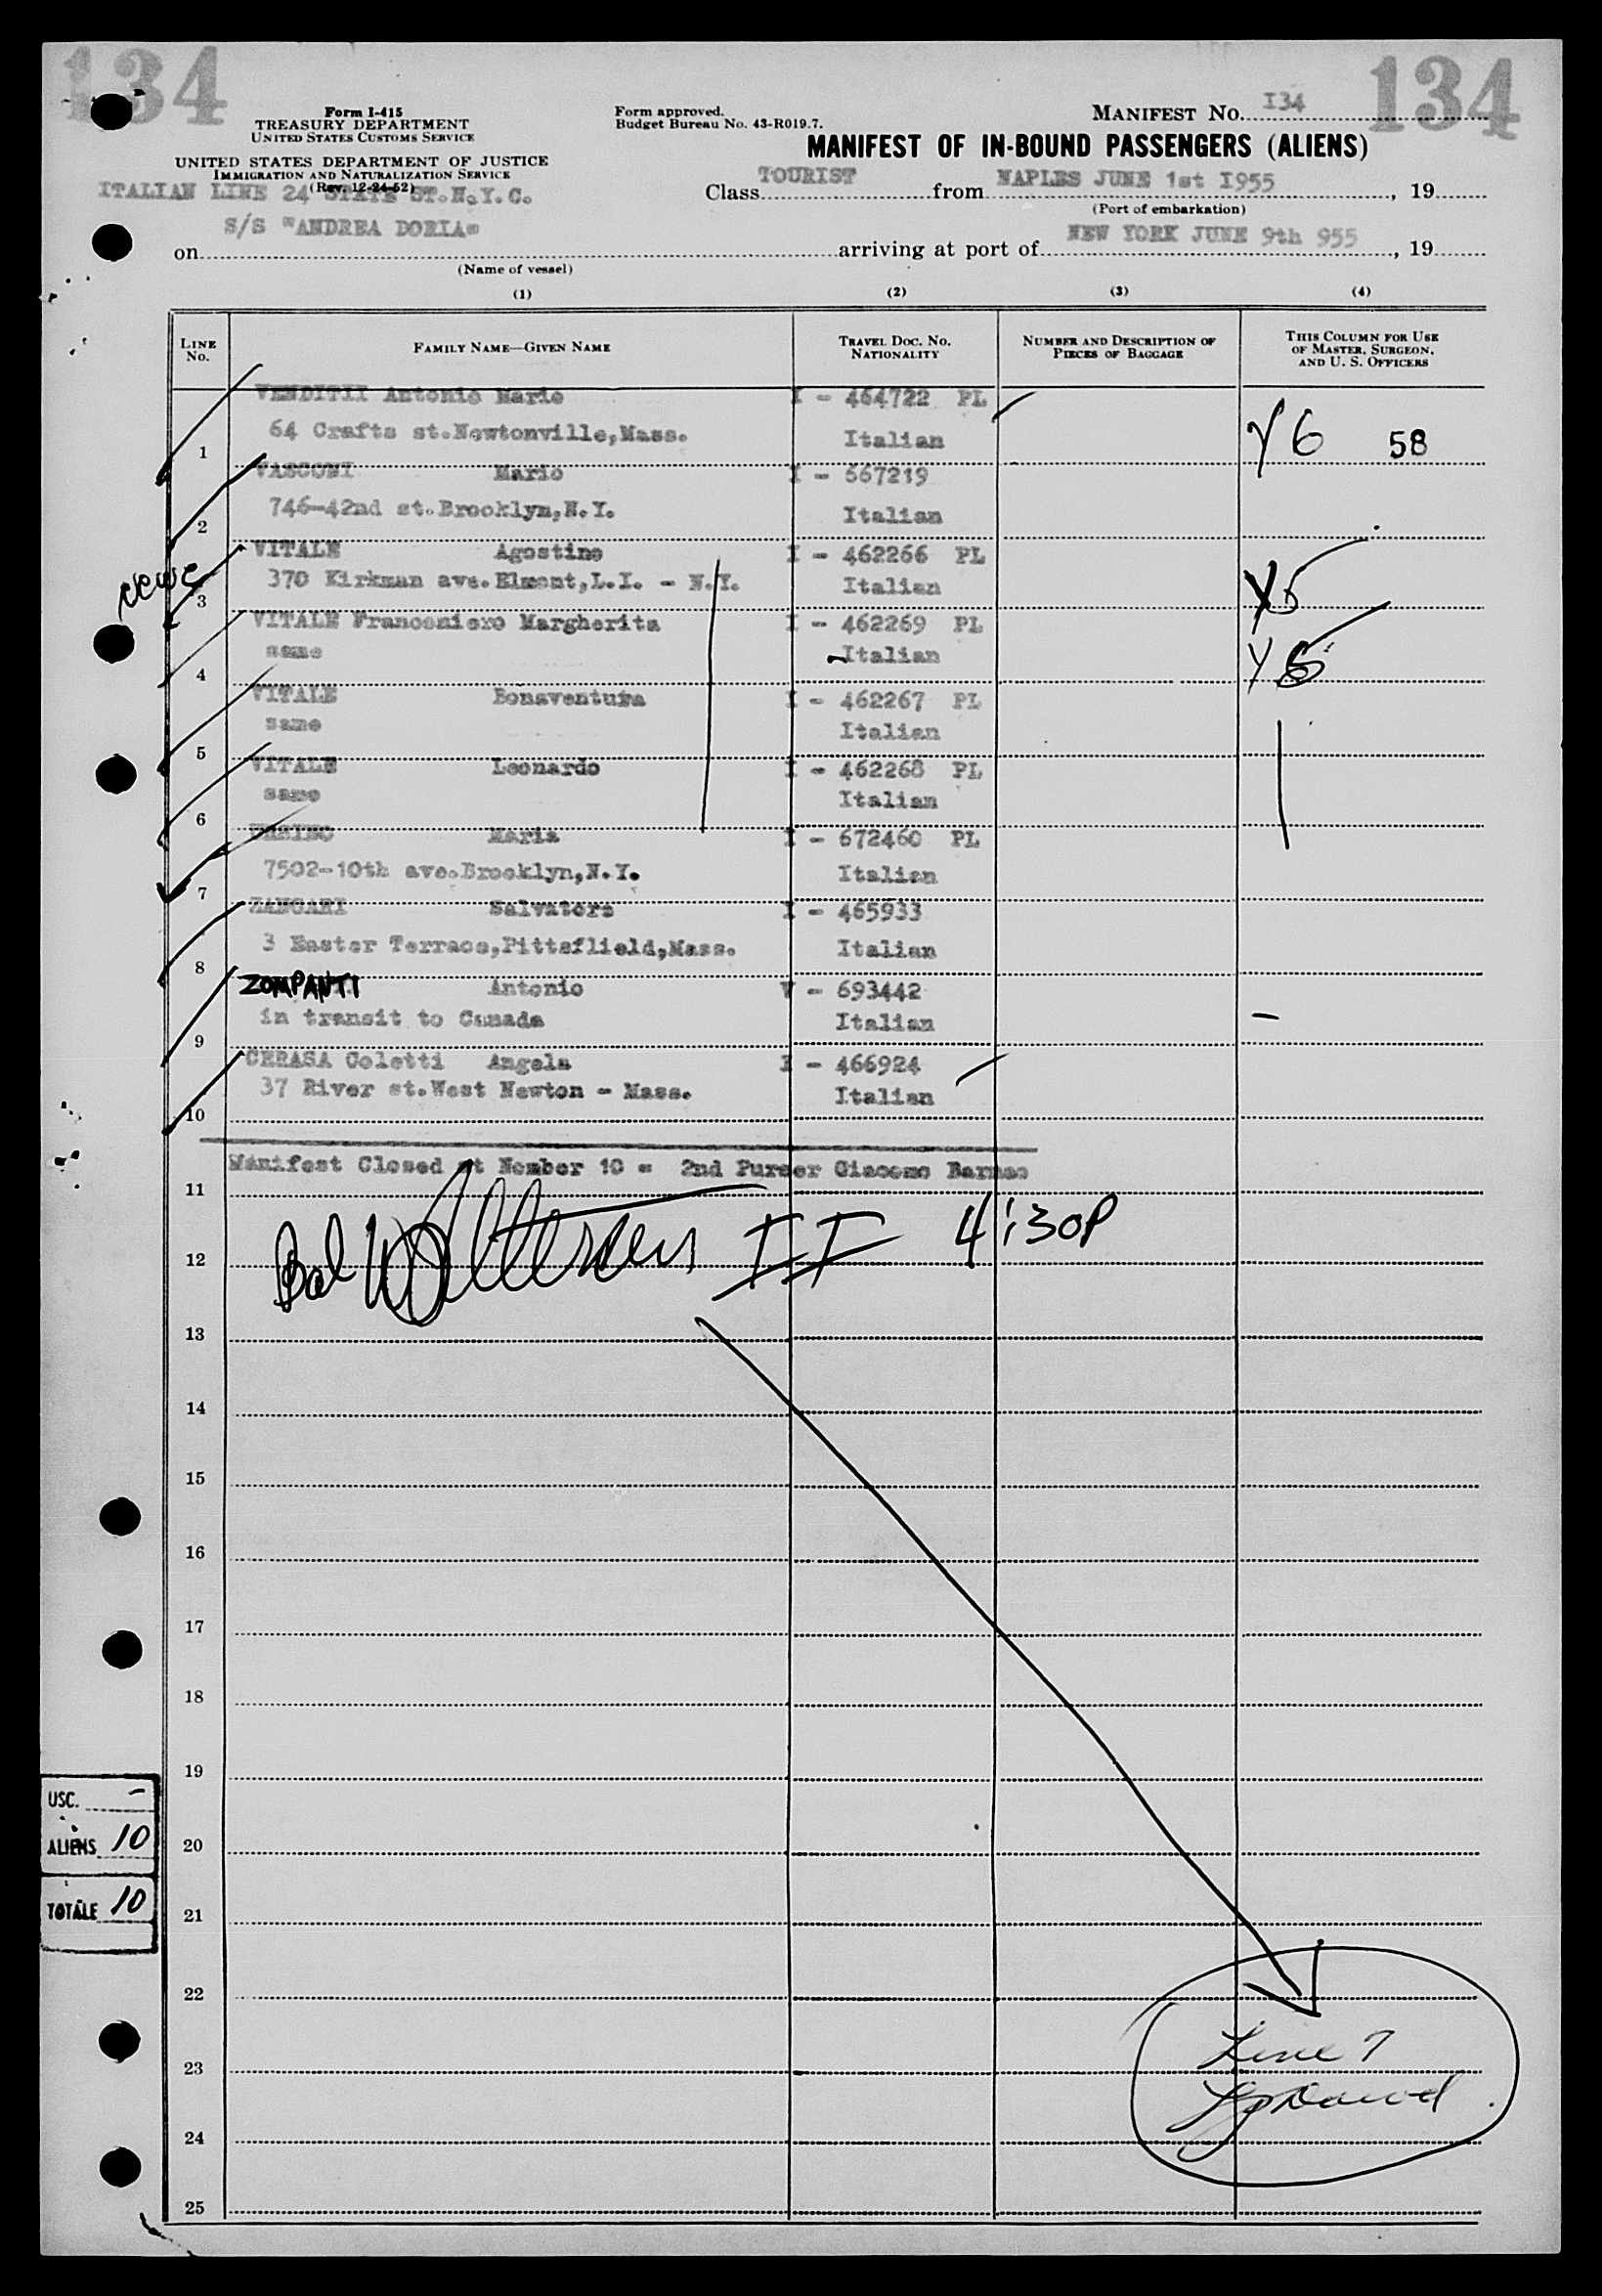 134
134
Form I-415
TREASURY DEPARTMENT
UNITED STATES CUSTOMS SERVICE
UNITED STATES DEPARTMENT OF JUSTICE
IMMIGRATION AND NATURALIZATION SERVICE
(Rev. 12-24-52)
Form approved.
Budget Bureau No. 43-R019.7.
MANIFEST NO. I34
MANIFEST OF IN-BOUND PASSENGERS (ALIENS)
ITALIAN LINE 24 STATE ST.N.Y.C.
Class TOURIST from NAPLES JUNE 1st I955, 19
(Port of embarkation)
on S/S "ANDREA DORIA" arriving at port of NEW YORK JUNE 9th 955, 19
(Name of vessel)
(1) (2) (3) (4)
LINE No. FAMILY NAME—GIVEN NAME TRAVEL DOC. NO. NATIONALITY NUMBER AND DESCRIPTION OF PIECES OF BAGGAGE THIS COLUMN FOR USE OF MASTER, SURGEON, AND U. S. OFFICERS
VENDITII Antonio Mario I - 464722 PL
1 64 Crafts st.Newtonville,Mass. Italian Y6 58
VASCONI Mario I - 667219
2 746-42nd st.Brooklyn,N.Y. Italian
VITALE Agostino I - 462266 PL
3 370 Kirkman ave.Elmont,L.I. - N.Y. Italian Y5
VITALE Franconiero Margherita I - 462269 PL
4 same Italian Y6
VITALE Bonaventura I - 462267 PL
5 same Italian
VITALE Leonardo I - 462268 PL
6 same Italian
Maria I - 672460 PL
7 7502-10th ave.Brooklyn,N.Y. Italian
ZANGARI Salvatore I - 465933
8 3 Easter Terrace,Pittsflield,Mass. Italian
ZOMPANTI Antonio V - 693442
9 in transit to Canada Italian —
CERASA Coletti Angela I - 466924
10 37 River st.West Newton - Mass. Italian
Manifest Closed at Nomber 10 = 2nd Purser Giacomo
11
12 II 4:30P
13
14
15
16
17
18
19
20
21
22
23
24
25
USC. -
ALIENS 10
TOTALE 10
Line 7